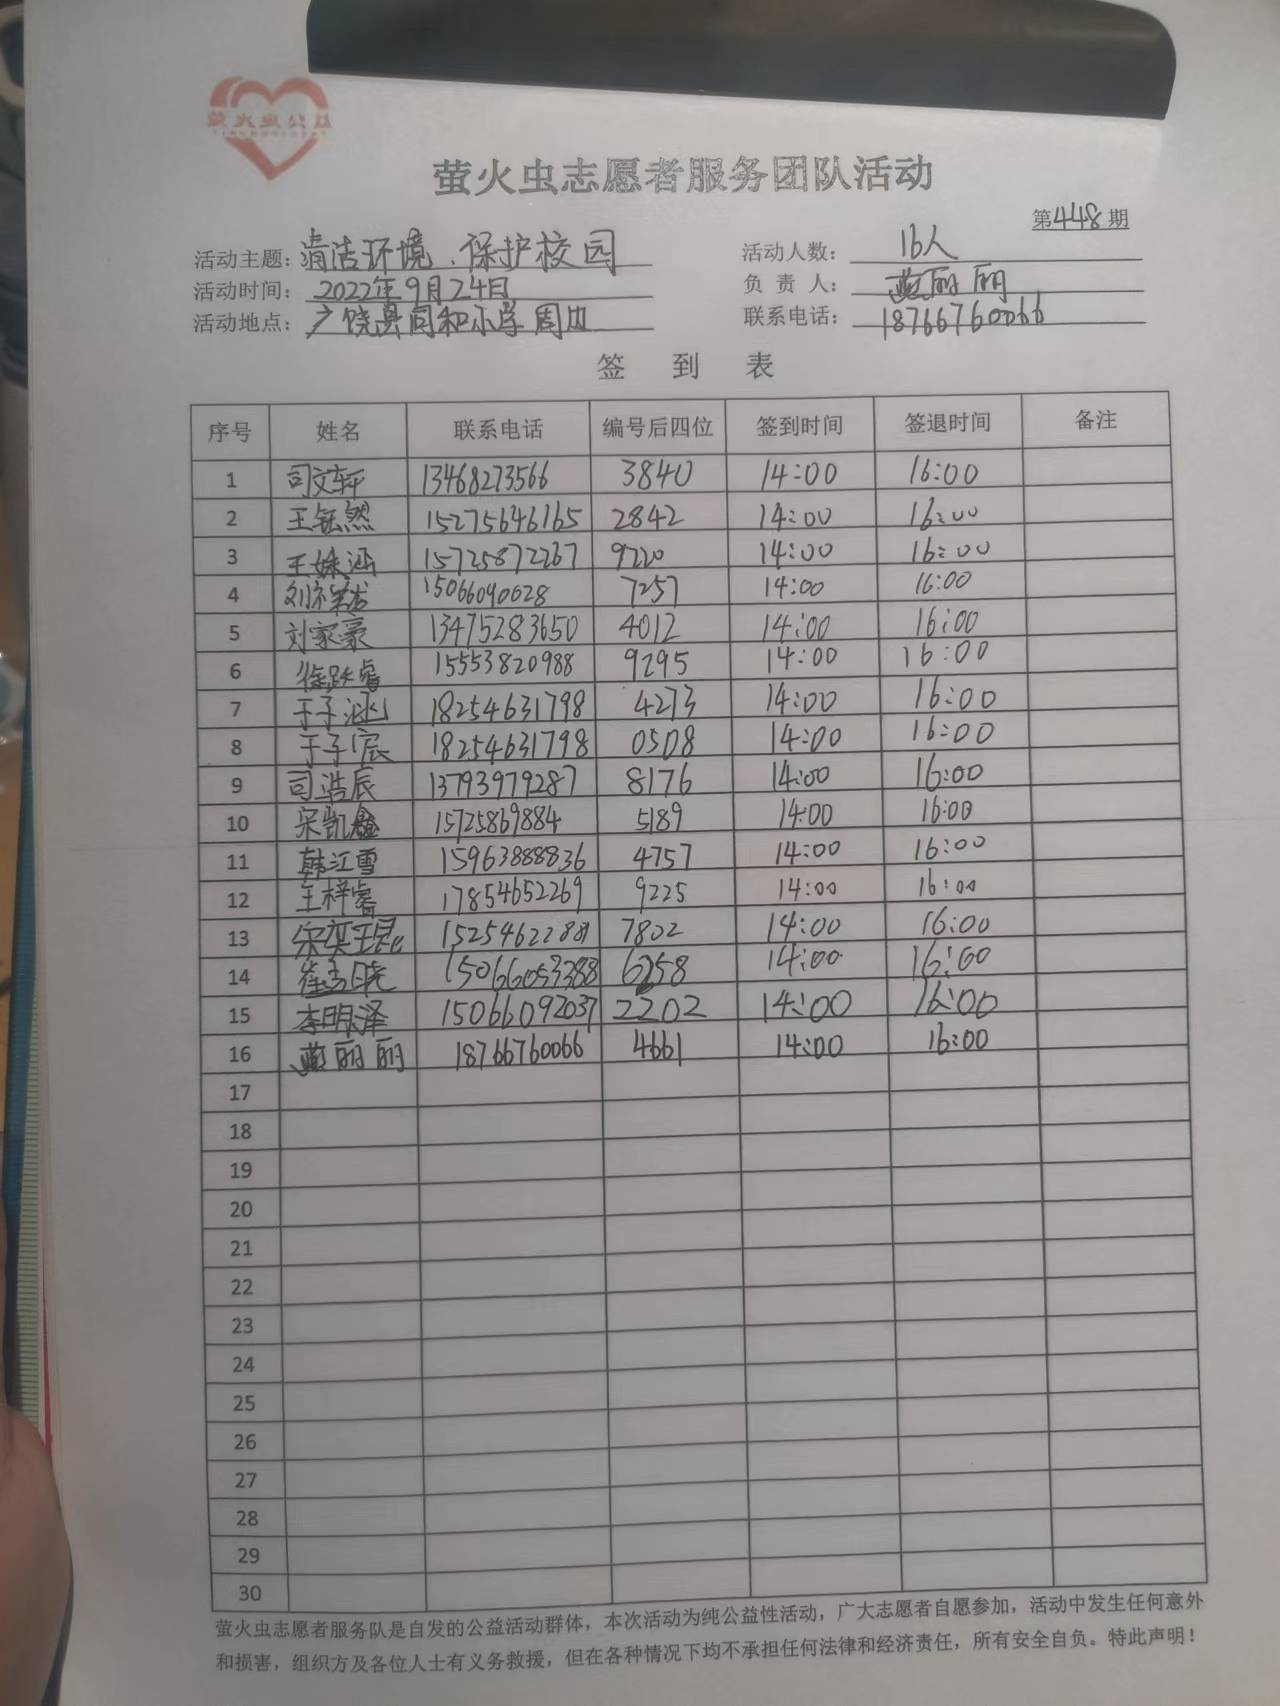 萤火虫公益
萤火虫志愿者服务团队活动
第448期
活动主题：清洁环境、保护校园 活动人数：16人
活动时间：2022年9月24日 负责人：燕丽丽
活动地点：广饶县同和小学周边 联系电话：18766760066
签到表
序号 姓名 联系电话 编号后四位 签到时间 签退时间 备注
1 司文轩 13468273566 3840 14:00 16:00
2 王钰然 15275646165 2842 14:00 16:00
3 王姝涵 15725872267 9220 14:00 16:00
4 15066090628 7257 14:00 16:00
5 刘家豪 13475283650 4012 14:00 16:00
6 徐跃睿 15553820988 9295 14:00 16:00
7 于子涵 18254631798 4273 14:00 16:00
8 于子宸 18254631798 0508 14:00 16:00
9 司浩辰 13793979287 8176 14:00 16:00
10 宋凯鑫 15725869884 5189 14:00 16:00
11 韩江雪 15963888836 4757 14:00 16:00
12 王梓睿 17854652269 9225 14:00 16:00
13 宋奕琨 15254622881 7802 14:00 16:00
14 15066053388 6258 14:00 16:00
15 李明泽 15066092037 2202 14:00 16:00
16 燕丽丽 18766760066 4661 14:00 16:00
17
18
19
20
21
22
23
24
25
26
27
28
29
30
萤火虫志愿者服务队是自发的公益活动群体，本次活动为纯公益性活动，广大志愿者自愿参加，活动中发生任何意外
和损害，组织方及各位人士有义务救援，但在各种情况下均不承担任何法律和经济责任，所有安全自负。特此声明！